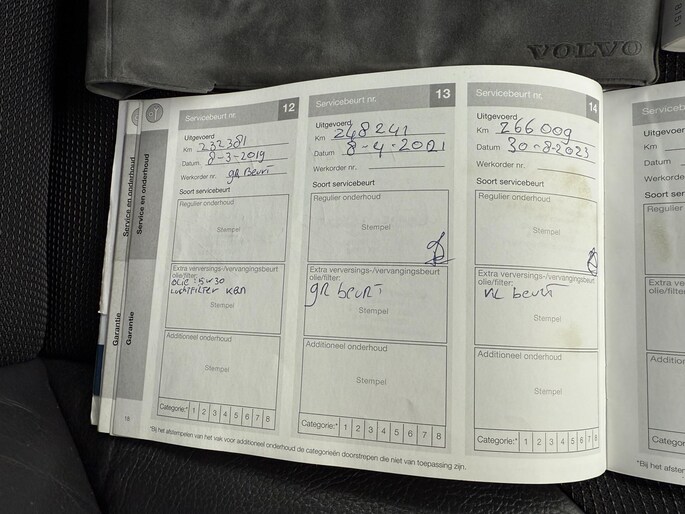 VOLVO
Service en onderhoud
Garantie
Service en onderhoud
Garantie
18
Servicebeurt nr. 12
Uitgevoerd
Km 232381
Datum 8-3-2019
Werkorder nr. gR Beurt
Soort servicebeurt
Regulier onderhoud
Stempel
Extra verversings-/vervangingsbeurt
olie/filter:
olie: 5w30
Luchtfilter
Stempel
Additioneel onderhoud
Stempel
Categorie:* 1 2 3 4 5 6 7 8
Servicebeurt nr. 13
Uitgevoerd
Km 248241
Datum 8-4-2021
Werkorder nr.
Soort servicebeurt
Regulier onderhoud
Stempel
Extra verversings-/vervangingsbeurt
olie/filter:
gR beurt
Stempel
Additioneel onderhoud
Stempel
Categorie:* 1 2 3 4 5 6 7 8
Servicebeurt nr. 14
Uitgevoerd
Km 266009
Datum 30-8-2023
Werkorder nr.
Soort servicebeurt
Regulier onderhoud
Stempel
Extra verversings-/vervangingsbeurt
olie/filter:
beurt
Stempel
Additioneel onderhoud
Stempel
Categorie:* 1 2 3 4 5 6 7 8
*Bij het afstempelen van het vak voor additioneel onderhoud de categorieën doorstrepen die niet van toepassing zijn.
Uitgevoerd
Km
Datum
Werkorder
Soort ser
Regulier
Extra ver
olie/filter:
Additione
Categorie
*Bij het afstem